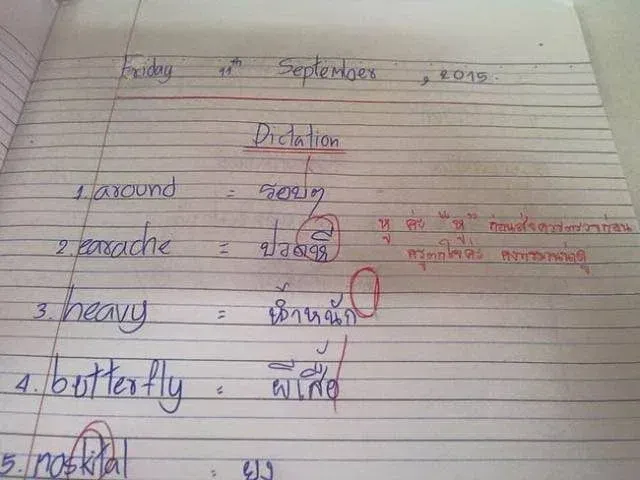 Friday 11th September , 2015.
Dictation
1. around = รอบๆ
2. earache = ปวดหี
หู ค่ะ "หู" ก่อนส่งควรตรวจก่อน
ครูตกใจค่ะ
3. heavy = น้ำหนัก
4. butterfly = ผีเสื้อ
5. noskital =